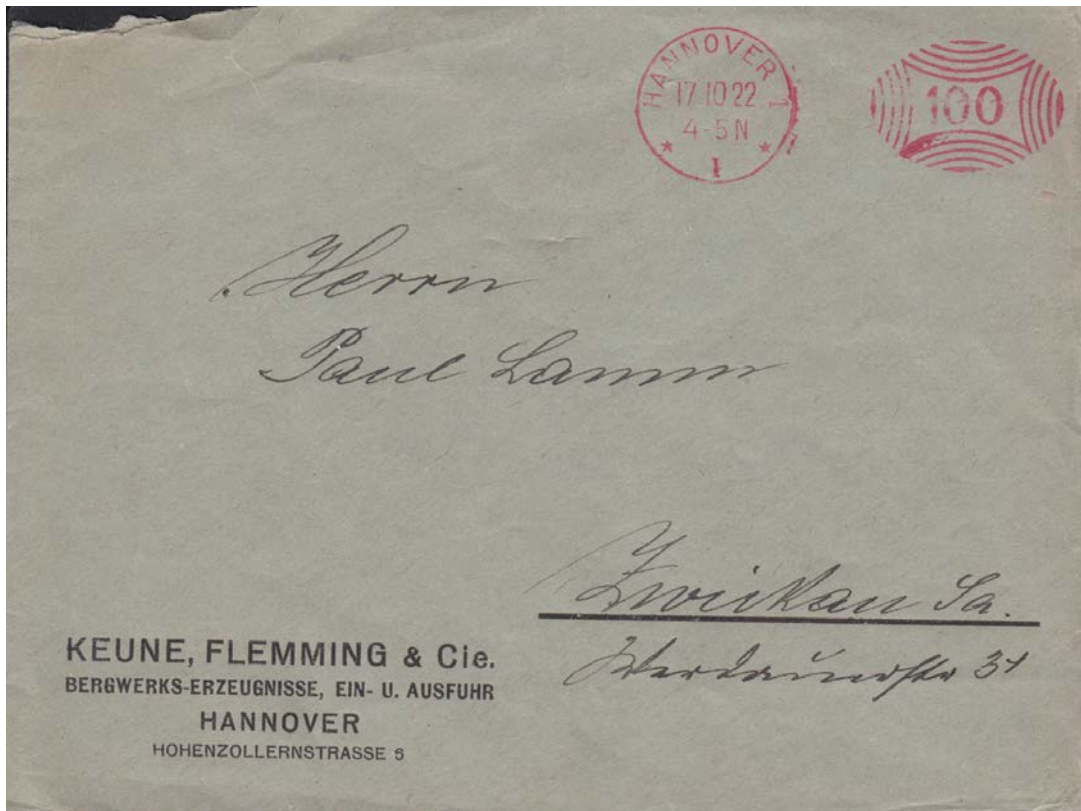 HANNOVER 1
17 10 22
4-5 N
* 1 *
100
Herrn
Paul Lamm
Zwickau Sa.
Werdauerstr 31
KEUNE, FLEMMING & Cie.
BERGWERKS-ERZEUGNISSE, EIN- U. AUSFUHR
HANNOVER
HOHENZOLLERNSTRASSE 6